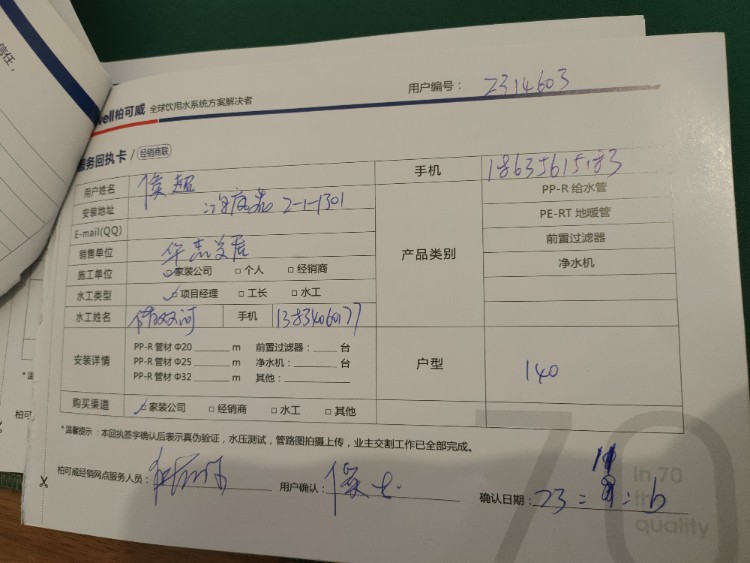 信任,
ell柏可威 全球饮用水系统方案解决者
用户编号: 2314603
服务回执卡 / 经销商联
用户姓名 侯超 手机 18635615183
安装地址 2-1-1301
E-mail(QQ)
销售单位 华杰
施工单位 ☑家装公司 □个人 □经销商
水工类型 ☑项目经理 □工长 □水工
水工姓名 手机 13834060177
产品类别
PP-R 给水管
PE-RT 地暖管
前置过滤器
净水机
安装详情
PP-R 管材 Φ20 ______ m 前置过滤器: ____ 台
PP-R 管材 Φ25 ______ m 净水机: ______ 台
PP-R 管材 Φ32 ______ m 其他: ______
户型 140
购买渠道 ☑家装公司 □经销商 □水工 □其他
*温馨提示:本回执签字确认后表示真伪验证,水压测试,管路图拍摄上传,业主交割工作已全部完成。
柏可威经销网点服务人员: 用户确认: 确认日期: 23
70
In 70
quality